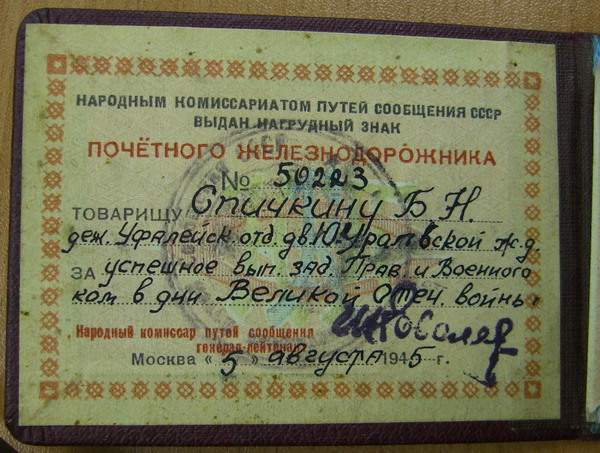 НАРОДНЫМ КОМИССАРИАТОМ ПУТЕЙ СООБЩЕНИЯ СССР
ВЫДАН НАГРУДНЫЙ ЗНАК
ПОЧЁТНОГО ЖЕЛЕЗНОДОРОЖНИКА
№ 50223
ТОВАРИЩУ Спичкину Б.Н.
деж. Уфалейск. отд. дв. Ю-Уральской ж.д.
ЗА успешное вып. зад. Прав. и Военного
ком в дни Великой Отеч. войны
Народный комиссар путей сообщения
генерал-лейтенант
Москва «5» августа 1945 г.